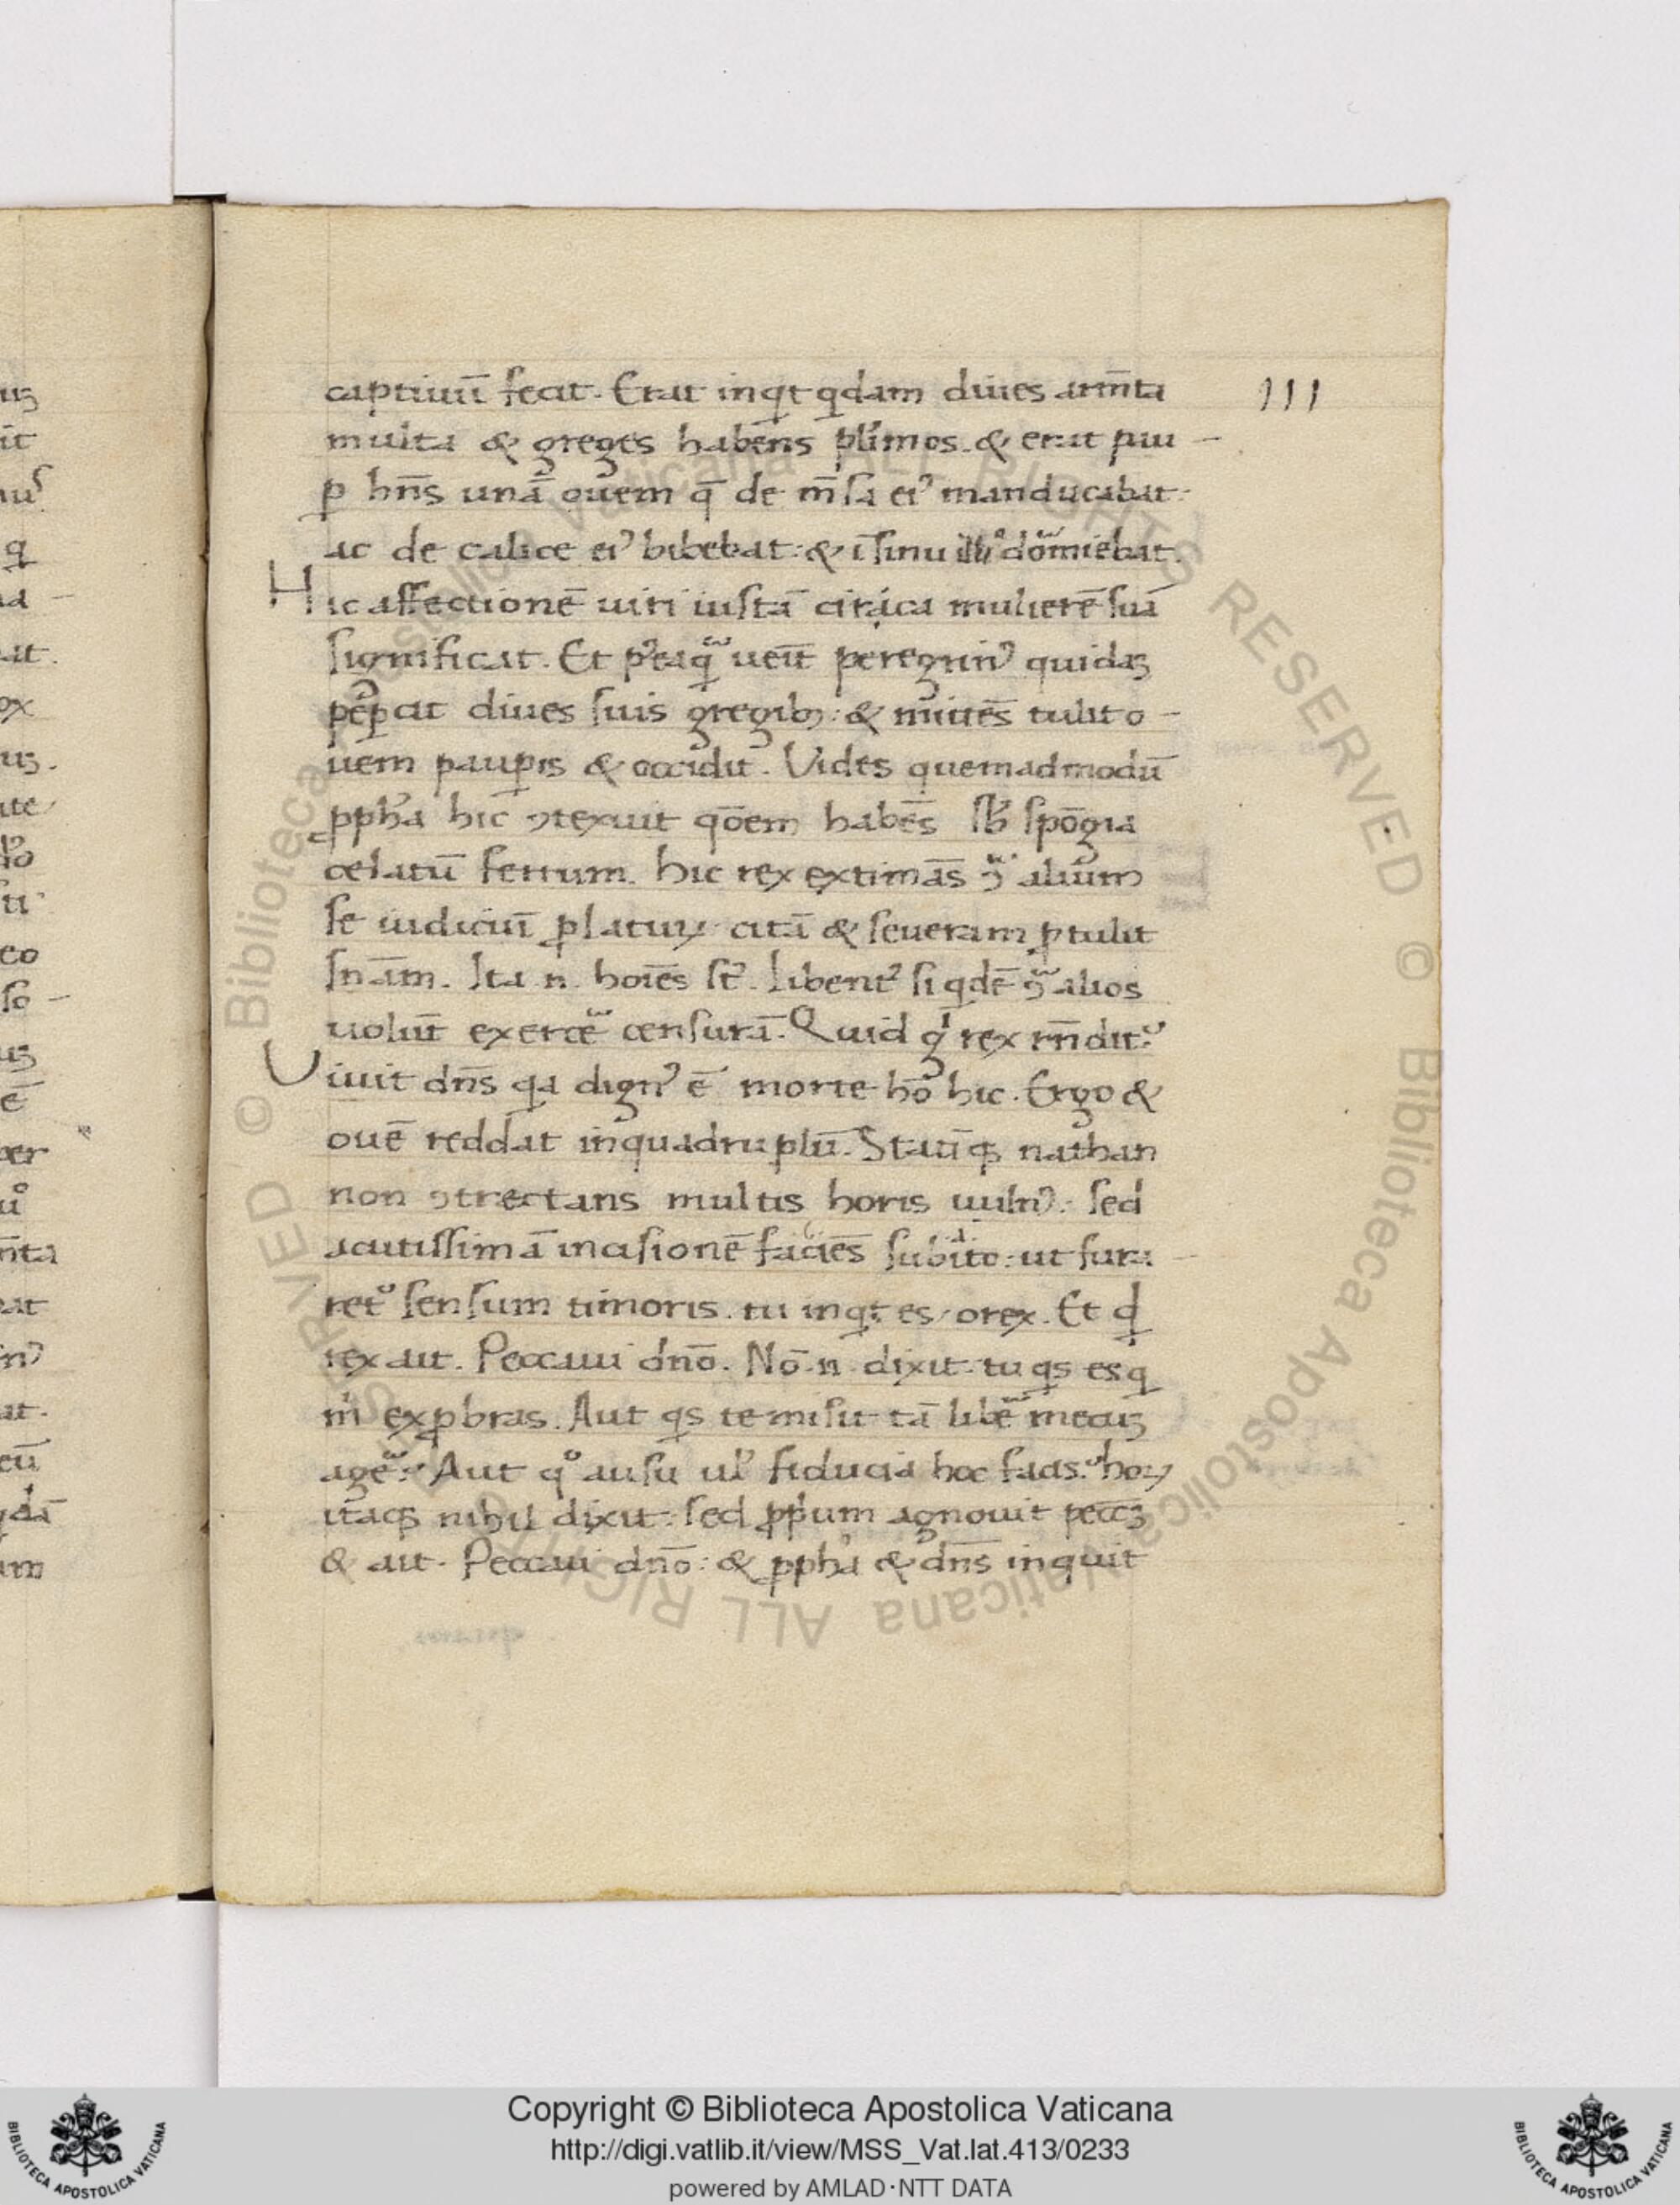 captiuū fecit. Erat inqt qdam diues arm̄ta
111
multa & greges habens plimos. & erat pau -
p hn̄s unā ouem q̄ de m̄sa ei⁹ manducabat:
ac de calice ei⁹ bibebat: & ī sinu illi⁹ dormiebat.
Hic affectionē uiri iustā circa mulierē suā
significat. Et p⁹eaq̃ ueīt peregrin⁹ quidaꝫ
peꝑcit diues suis gregibꝫ: & mittēs tulit o -
uem pauꝑis & occidit. Vides quemadmodū
ꝓpha hic ꝯtexuit qōem habēs sb spōgia
celatū ferrum. hic rex extimās ꝯ̃ alium
se iudiciū ꝓlatuꝝ citā & seueram ꝓtulit
sn̄am. Ita n. hoīes st̄. Libent⁹ siqdē ꝯ̃ alios
uolūt exercẽ censurā. Quid gͥ rex rn̄dit:
Uiuit dn̄s qa dign⁹ ē morte hō hic. Ergo &
ouē reddat inquadruplū. Statīqꝫ nathan
non ꝯtrectans multis horis uuln⁹: sed
acutissimā incisionē faciēs subito: ut fura -
ret᷑ sensum timoris. tu inqt es o rex. Et qͥd
rex ait. Peccaui dn̄o. Nō n. dixit: tu qs es q
mͥ exꝓbras. Aut qs te misit tā libẽ mecuꝫ
agẽ: Aut qͦ ausu ul̓ fiducia hoc facis: hoꝝ
itaqꝫ nihil dixit: sed ꝓpͥum agnouit peccꝫ
& ait. Peccaui dn̄o: & ꝓpha & dn̄s inquit
Copyright © Biblioteca Apostolica Vaticana
http://digi.vatlib.it/view/MSS_Vat.lat.413/0233
powered by AMLAD·NTT DATA
BIBLIOTECA APOSTOLICA VATICANA
BIBLIOTECA APOSTOLICA VATICANA
© Biblioteca Apostolica Vaticana ALL RIGHTS RESERVED © Biblioteca Apostolica Vaticana ALL RIGHTS RESERVED